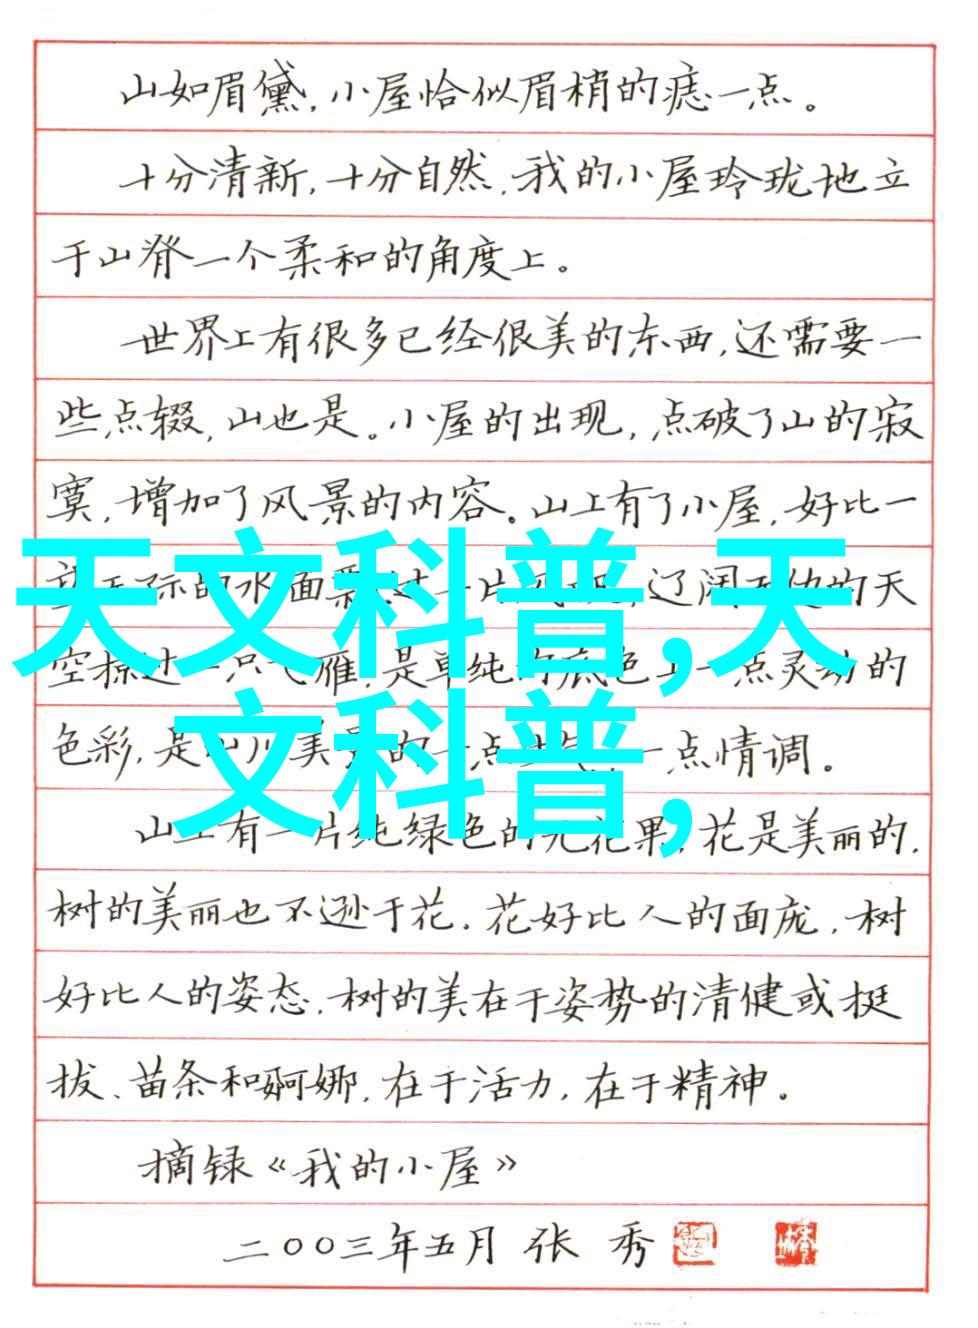 山如眉黛，小屋恰似眉梢的痣一点。
十分清新，十分自然，我的小屋玲珑地立
于山脊一个柔和的角度上。
世界上有很多已经很美的东西，还需要一
些点缀，山也是。小屋的出现，点破了山的寂
寞，增加了风景的内容。山上有了小屋，好比一
的水面 一片 辽阔 的天
天文科普,天
空掠过一只 雁，是单纯的底色上一点灵动的
色彩，是 美 的一点 一点情调。
文科普,
山上有一片纯绿色的无花果，花是美丽的，
树的美丽也不逊于花。花好比人的面庞，树
好比人的姿态。树的美在于姿势的清健或挺
拔、苗条和婀娜，在于活力，在于精神。
摘录《我的小屋》
二〇〇三年五月 张 秀